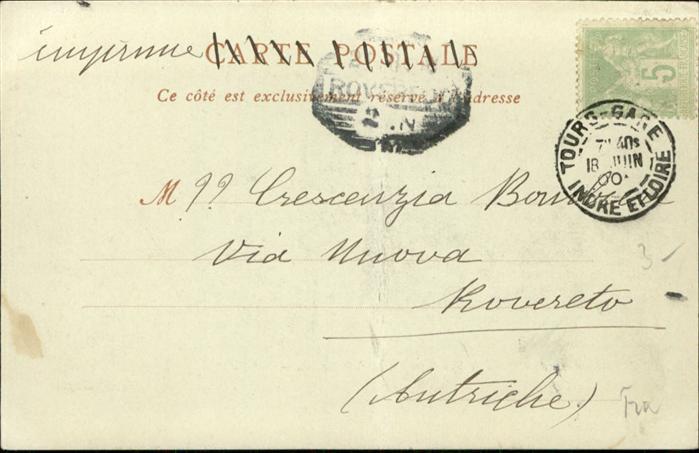 imprimé CARTE POSTALE
Ce côté est exclusivement réservé à l'adresse
5
TOURS-GARE
18 JUIN
INDRE ET LOIRE
Mlle Crescenzia
Via Nuova
3-
Rovereto
(Autriche)